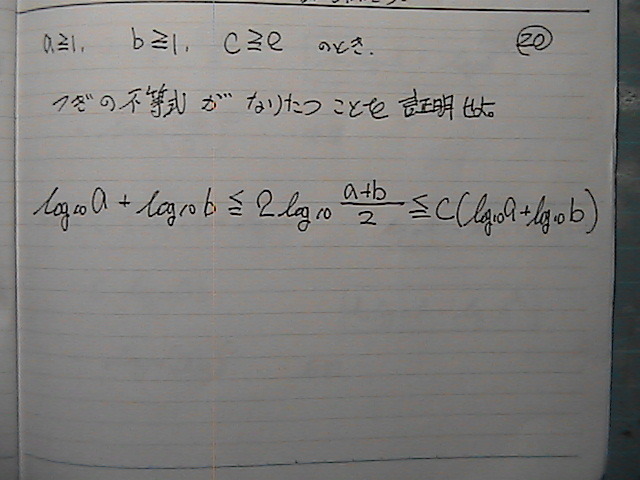 a≧1, b≧1, c≧e のとき. 20
つぎの不等式がなりたつことを証明せよ。
log₁₀a + log₁₀b ≦ 2 log₁₀ (a+b)/2 ≦ c(log₁₀a+log₁₀b)